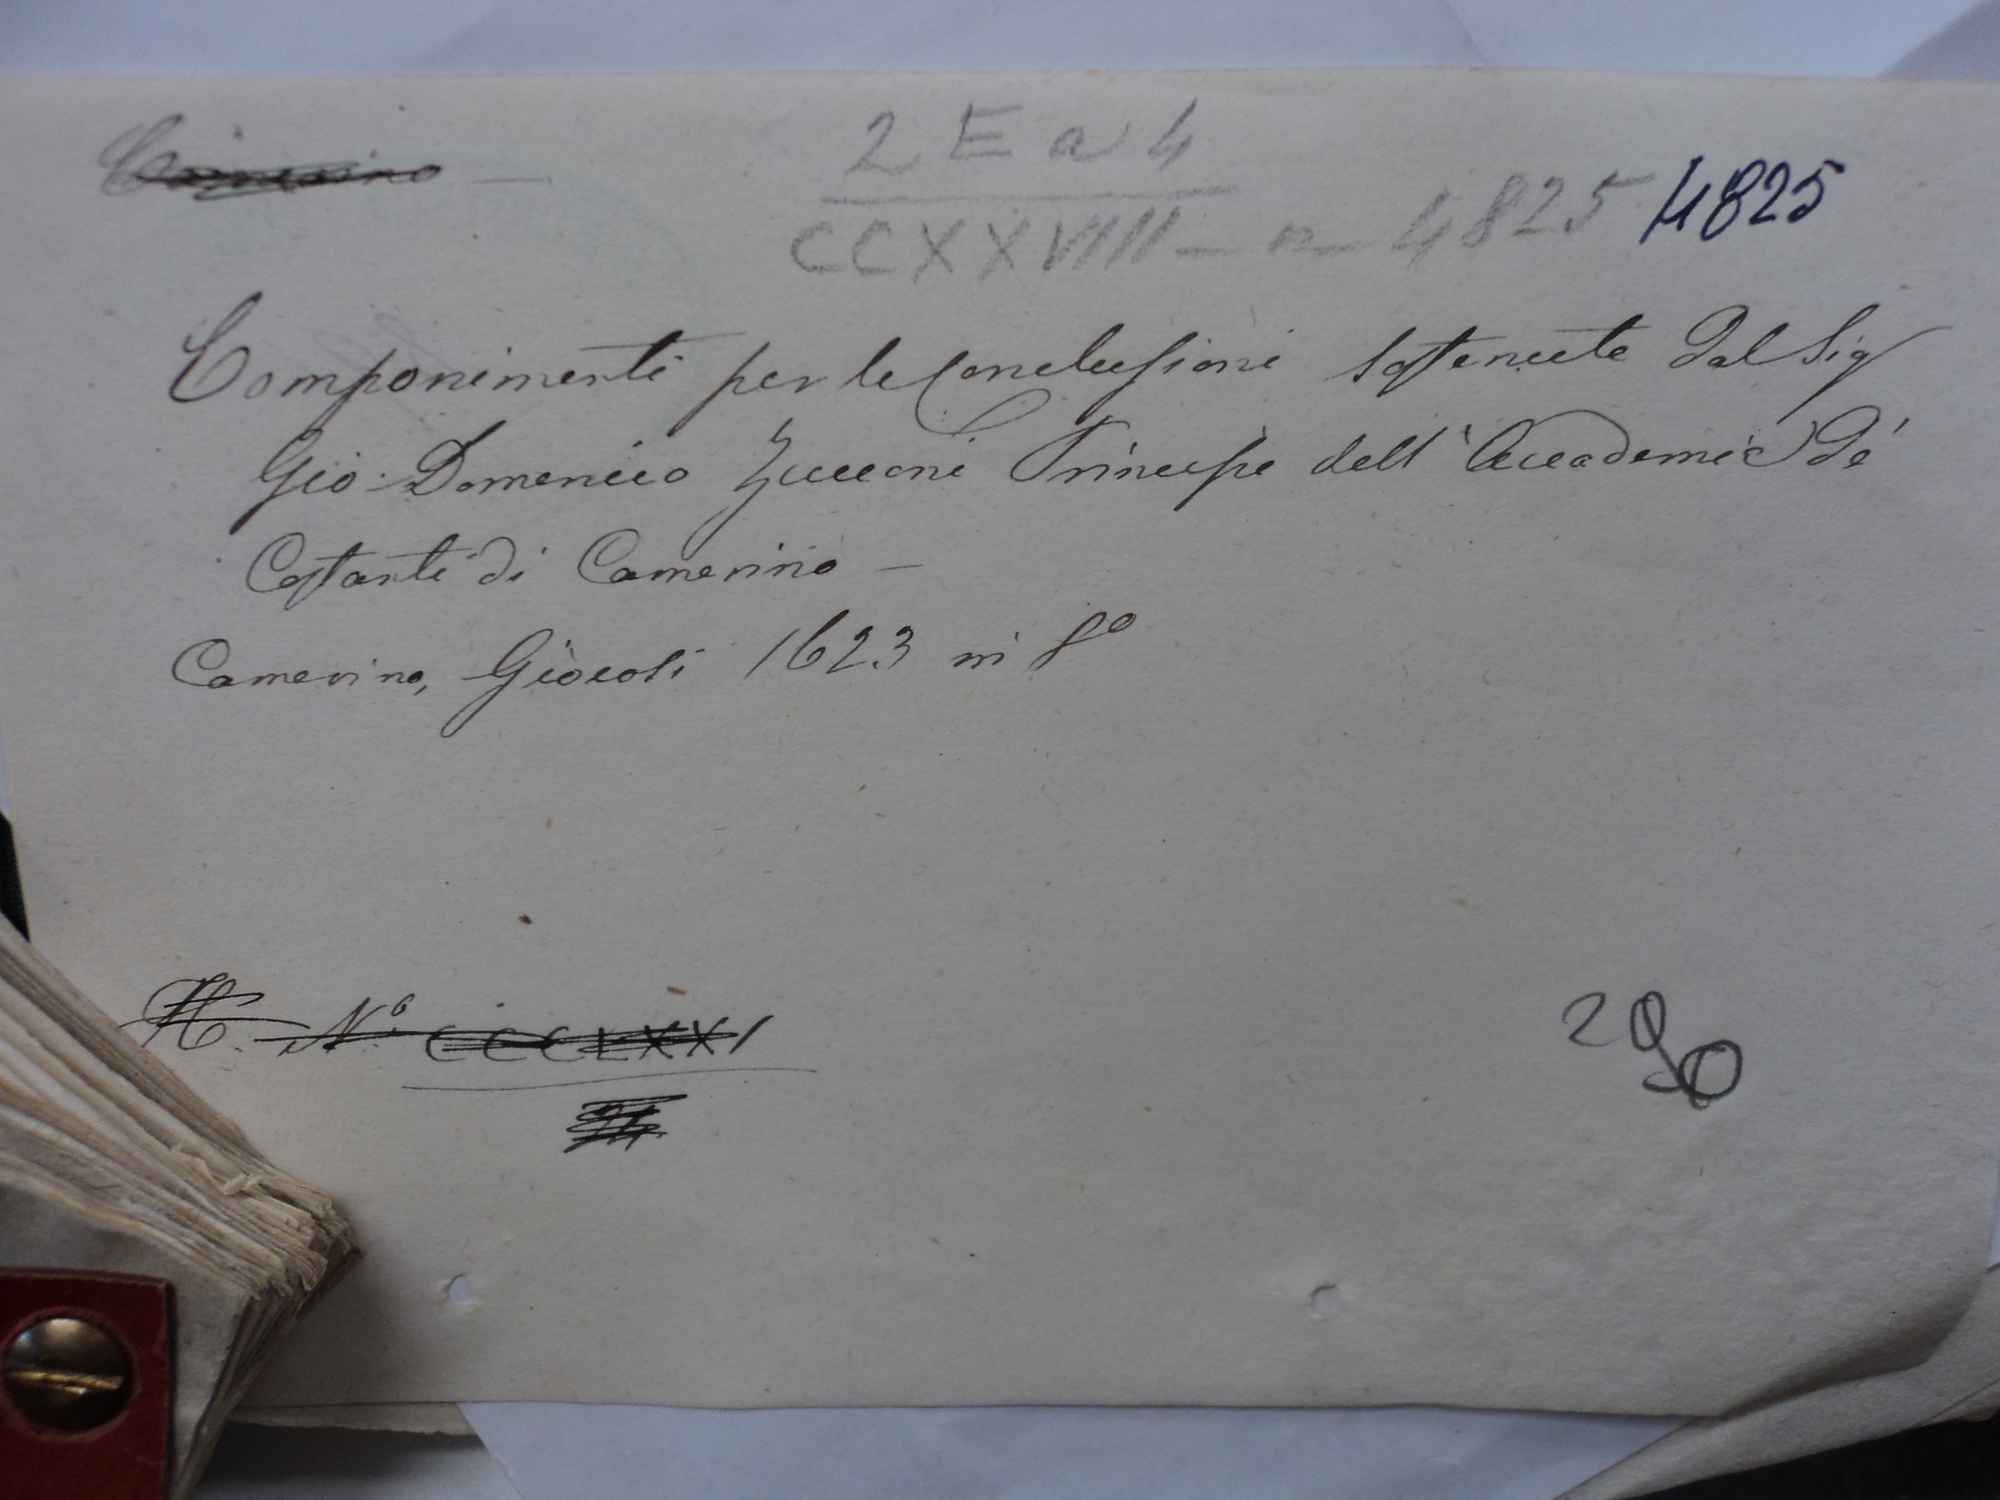 Camerino —
2 E a 4
CCXXVIIII — n — 4825 4825
Componimenti per le Conclusioni sostenute dal Sig
Gio. Domenico Zucconi Principe dell' Accademia de'
Costanti di Camerino —
Camerino, Giocosi 1623 in 8º
N.º CCCLXXI
290